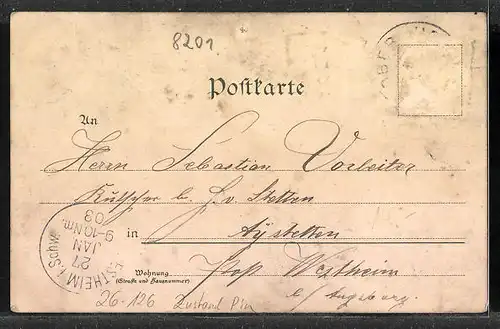 8201
OBER
Postkarte
An
Herrn Sebastian Vorbeiter
Kutscher b. H. v. Stetten
in Aystetten
Wohnung
(Straße und Hausnummer)
Post Westheim
b/ Augsburg.
ESTHEIM i. Schw.
27
JAN
9-10Nm.
03
26-126 Zustand P/m